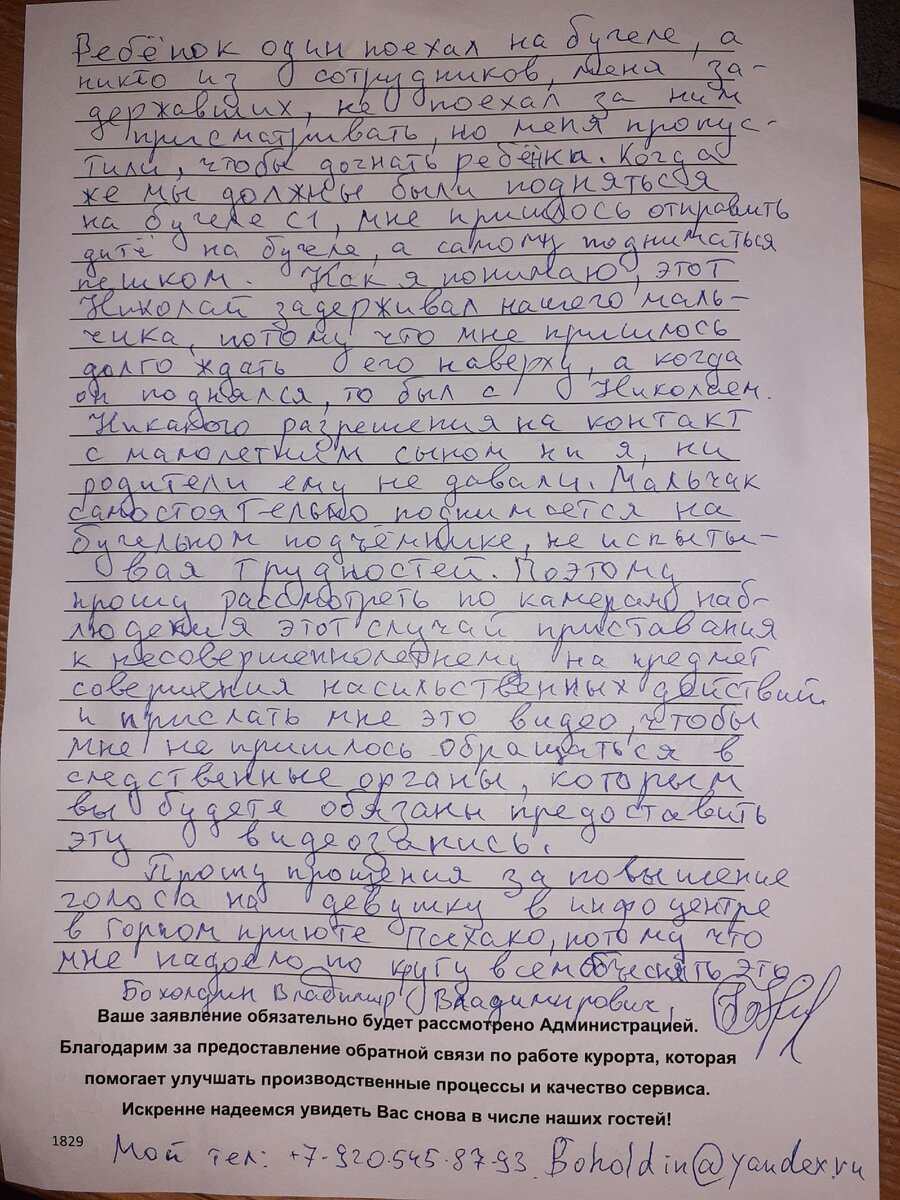 Ребёнок один поехал на бугеле, а
никто из сотрудников, меня за-
державших, не поехал за ним
присматривать, но меня пропус-
тили, чтобы догнать ребёнка. Когда
же мы должны были подняться
на бугеле С1, мне пришлось отправить
дитё на бугеле, а самому подниматься
пешком. Как я понимаю, этот
Николай задерживал нашего маль-
чика, потому что мне пришлось
долго ждать его наверху, а когда
он поднялся, то был с Николаем.
Никакого разрешения на контакт
с малолетнем сыном ни я, ни
родители ему не давали. Мальчак
самостоятельно поднимается на
бугельном подъёмнике, не испыты-
вая трудностей. Поэтому
прошу рассмотреть по камерам наб-
людения этот случай приставания
к несовершеннолетнему на предмет
совершения насильственных действий
и прислать мне это видео, чтобы
мне не пришлось обращаться в
следственные органы, которым
вы будете обязаны предоставить
эту видеозапись.
Прошу прощения за повышение
голоса на девушку в инфоцентре
в Горном приюте Псехако, потому что
мне надоело по кругу всем объяснять это
Бохолдин Владимир Владимирович,
Ваше заявление обязательно будет рассмотрено Администрацией.
Благодарим за предоставление обратной связи по работе курорта, которая
помогает улучшать производственные процессы и качество сервиса.
Искренне надеемся увидеть Вас снова в числе наших гостей!
1829
Мой тел: +7-920-545-87-93 Boholdin@yandex.ru